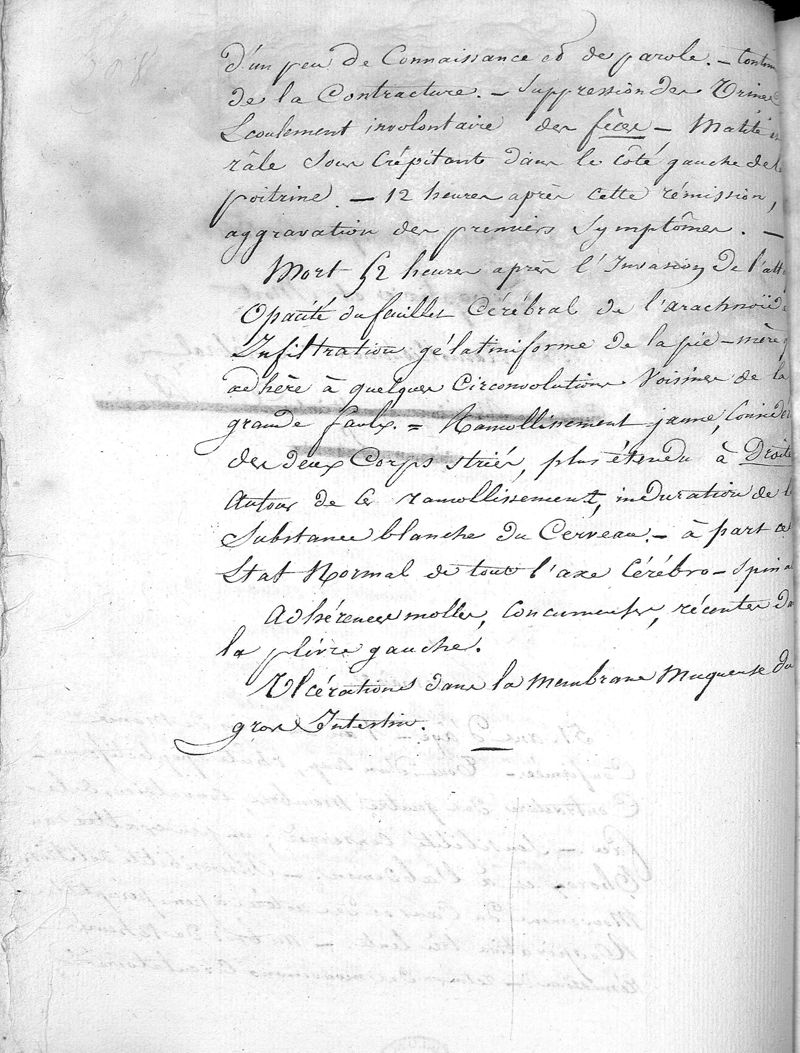 d'un peu de Connaissance et de parole. — Contin
de la Contracture. — Suppression des Urines
Ecoulement involontaire des fèces — Matité et
râle sous crépitant dans le côté gauche de la
poitrine. — 12 heures après cette rémission,
aggravation des premiers symptômes. —
Mort 52 heures après l'Invasion de l'att
Opacité du feuillet Cérébral de l'arachnoïde
Infiltration gélatiniforme de la pie-mère q
adhère à quelques Circonvolutions Voisines de la
grande faulx. = Ramollissement jaune, Considér
des deux Corps striés, plus étendu à Droite
autour de ce ramollissement, induration de l
Substance blanche du Cerveau. — à part ce
Etat Normal de tout l'axe Cérébro-Spina
Adhérences molles, récentes da
la plèvre gauche.
Ulcérations dans la Membrane Muqueuse du
gros Intestin.